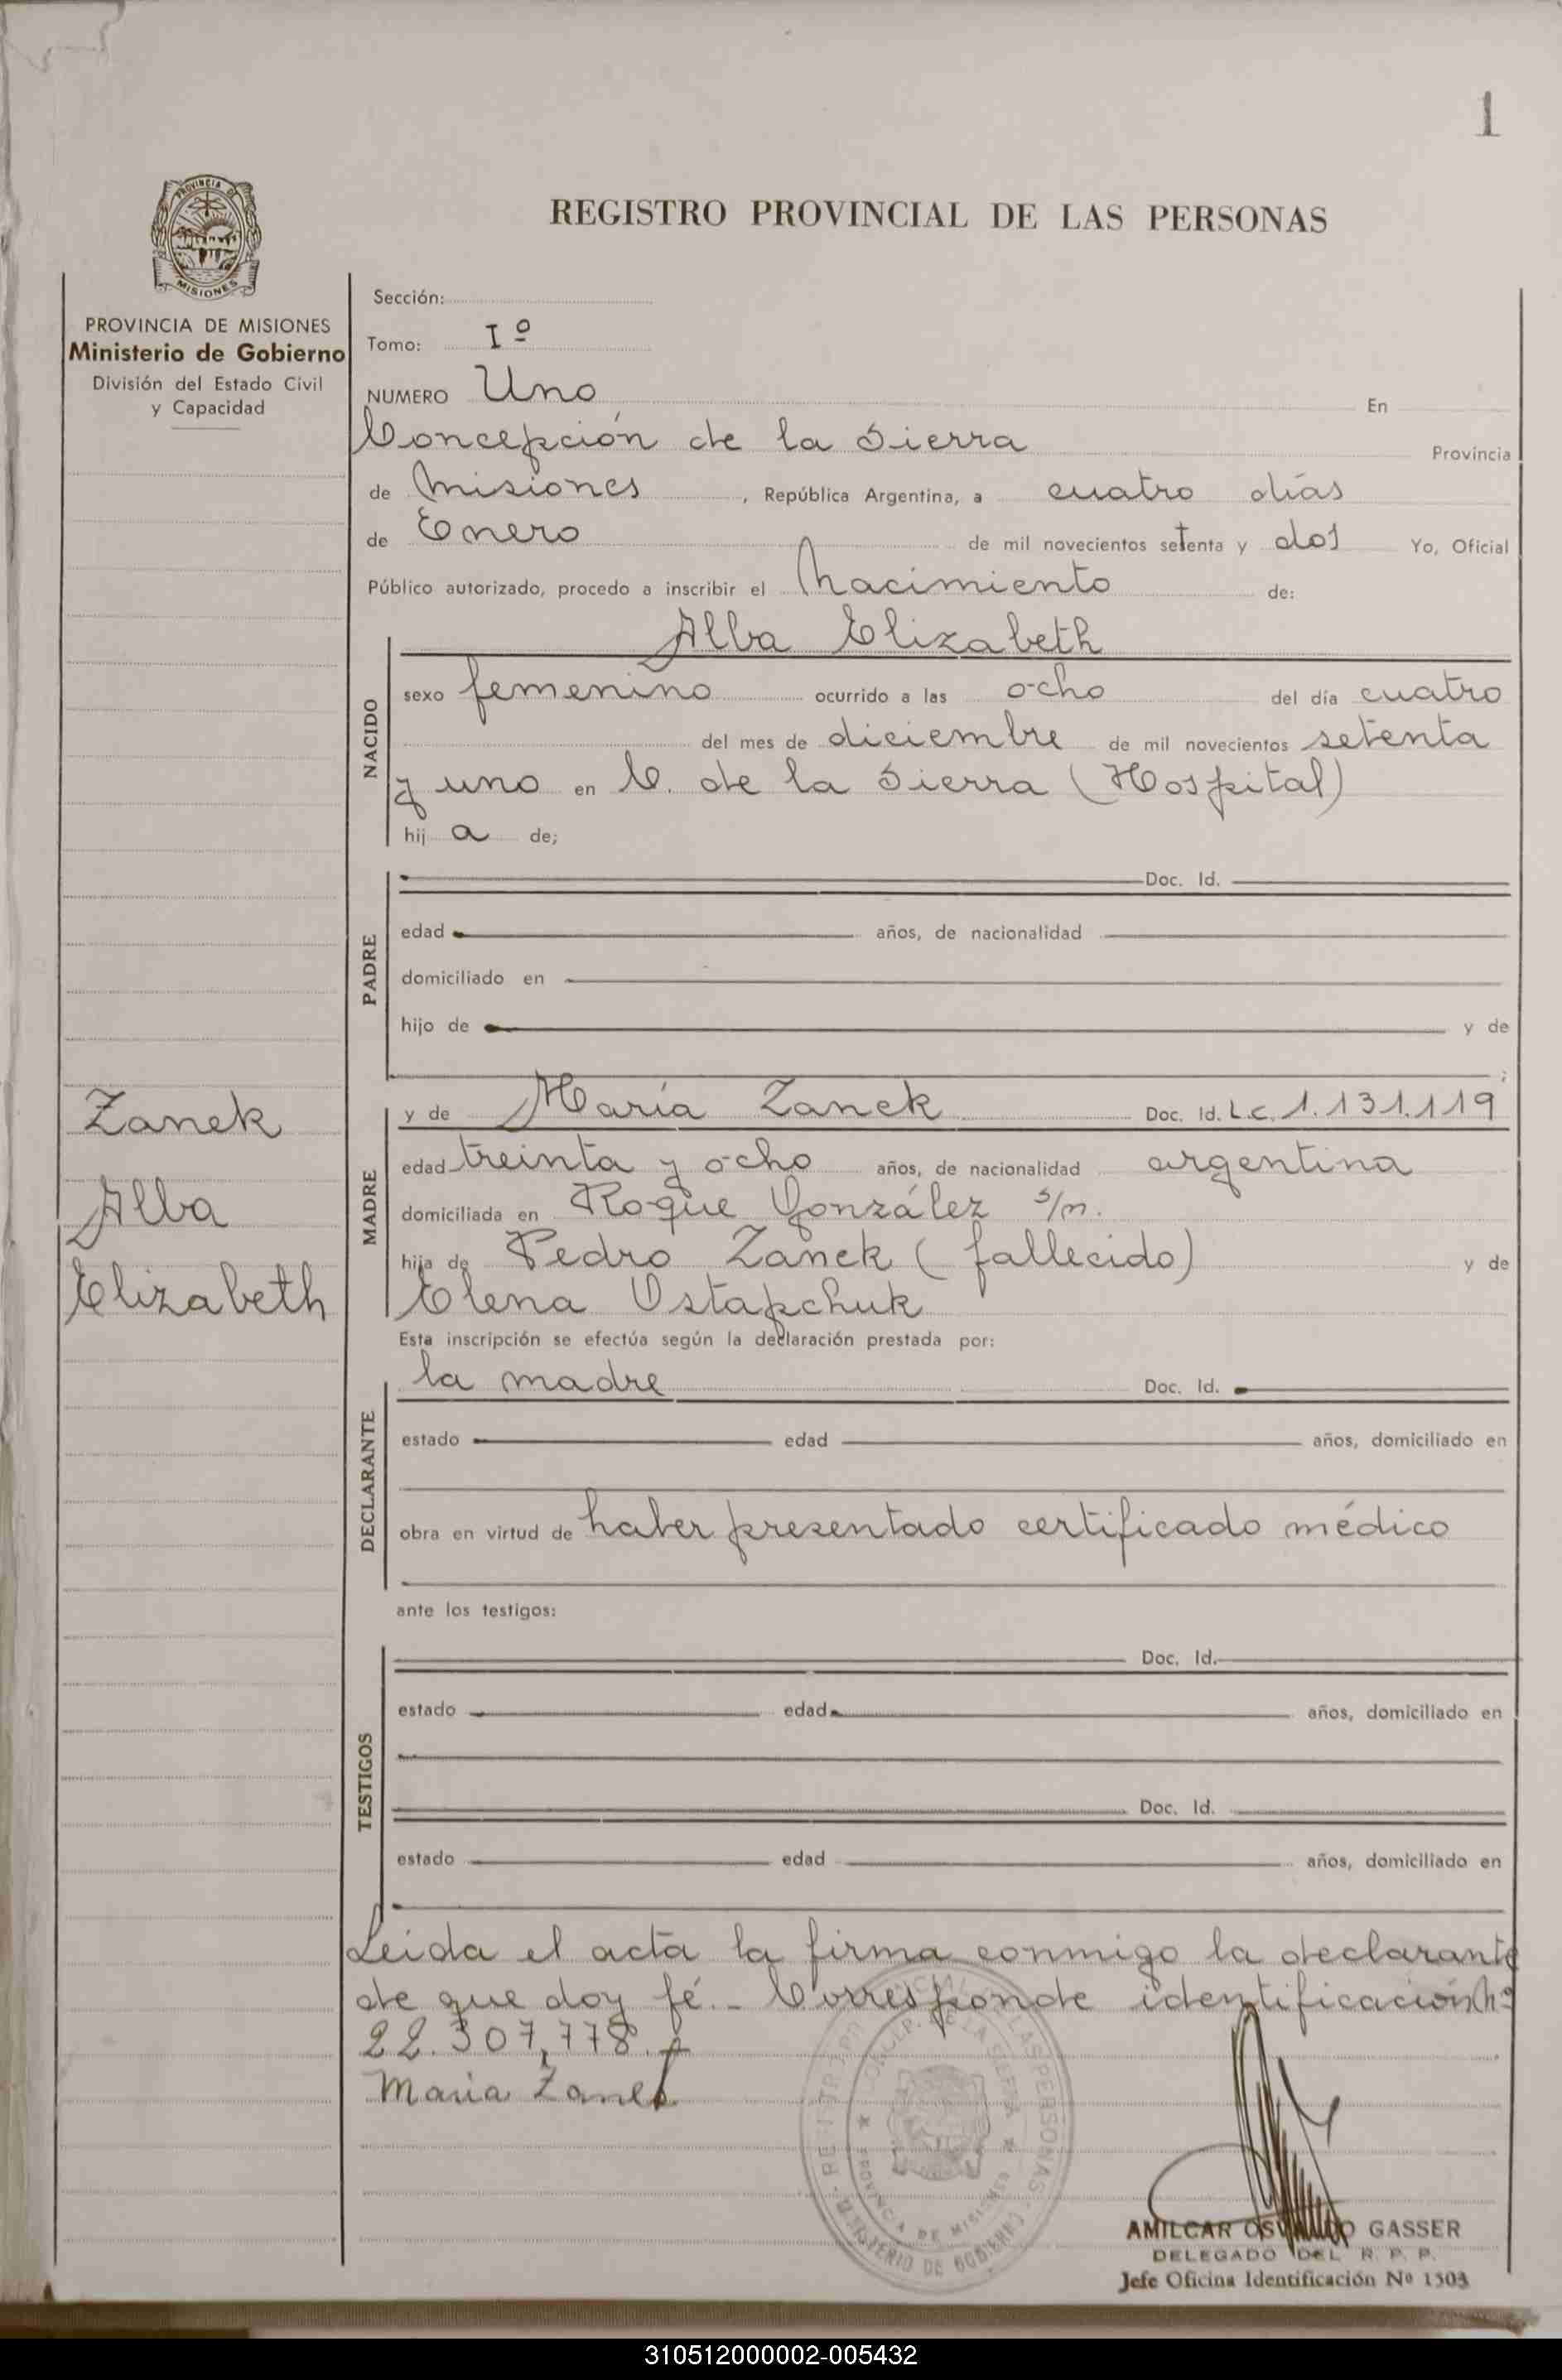 1
PROVINCIA DE
MISIONES
REGISTRO PROVINCIAL DE LAS PERSONAS
PROVINCIA DE MISIONES
Ministerio de Gobierno
División del Estado Civil
y Capacidad
Sección:
Tomo: Iº
NUMERO Uno En
Concepción de la Sierra Provincia
de Misiones, República Argentina, a cuatro días
de Enero de mil novecientos setenta y dos Yo, Oficial
Público autorizado, procedo a inscribir el Nacimiento de:
NACIDO
Alba Elizabeth
sexo femenino ocurrido a las ocho del día cuatro
del mes de diciembre de mil novecientos setenta
y uno en C. de la Sierra (Hospital)
hij a de;
PADRE
Doc. Id.
edad años, de nacionalidad
domiciliado en
hijo de y de
;
Zanek
Alba
Elizabeth
MADRE
y de María Zanek Doc. Id. L.C. 1.131.119
edad treinta y ocho años, de nacionalidad argentina
domiciliada en Roque González s/n.
hija de Pedro Zanek (fallecido) y de
Elena Ostapchuk
Esta inscripción se efectúa según la declaración prestada por:
DECLARANTE
la madre Doc. Id.
estado edad años, domiciliado en
obra en virtud de haber presentado certificado médico
ante los testigos:
TESTIGOS
Doc. Id.
estado edad años, domiciliado en
Doc. Id.
estado edad años, domiciliado en
Leida el acta la firma conmigo la declarante
de que doy fé.- Corresponde identificación nº
22.307.778.-
Maria Zanek
PROVINCIA DE MISIONES
MINISTERIO DE GOBIERNO
AMILCAR OSVALDO GASSER
DELEGADO DEL R. P. P.
Jefe Oficina Identificación Nº 1503
310512000002-005432